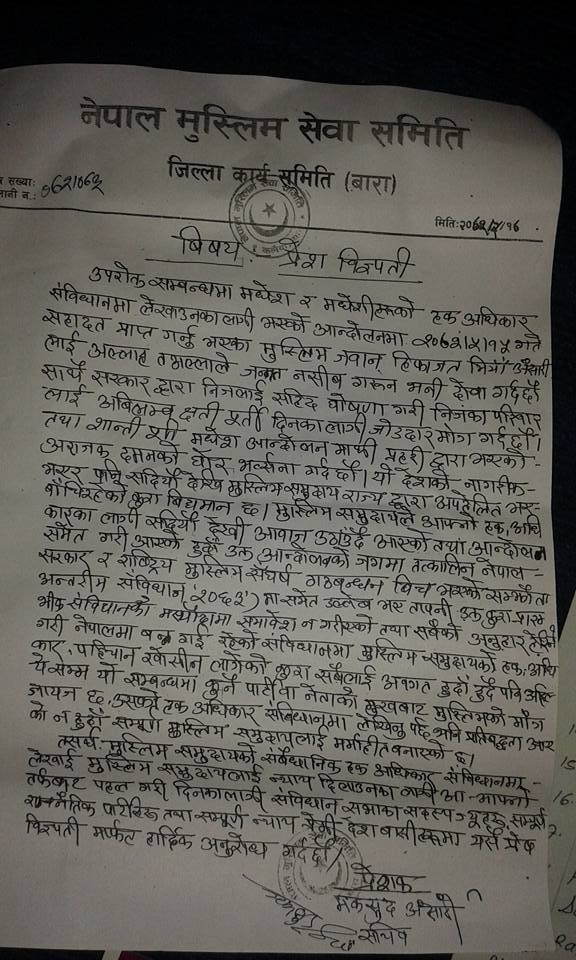 नेपाल मुस्लिम सेवा समिति
जिल्ला कार्य समिति (बारा)
संख्याः
मितिः२०
बिषय: प्रेश विज्ञप्ती
उपरोक्त सम्बन्धमा मधेश र मधेशीहरूको हक अधिकार
संविधानमा लेखाउनका लागी भएको आन्दोलनमा गते
सहादत प्राप्त गर्नु भएका मुस्लिम जवान् हिफाजत मियाँ अंसारी
लाई अल्लाह तआलाले जन्नत नसीब गरून भनी दोवा गर्दछौं
साथै सरकार द्वारा निजलाई सहिद घोषणा गरी निजका परिवार
लाई अबिलम्ब क्षती पूर्ती दिनका लागी जोडदार माग गर्दछौं।
तथा शान्ती पूर्ण मधेश आन्दोलन माथी प्रहरी द्वारा भएको-
अराजक दमनको घोर भर्त्सना गर्दछौं। यो देशको नागरीक-
भएर पनि सदियौं देखि मुस्लिम समुदाय राज्य द्वारा अपहेलित भए-
बाँचिरहेको कुरा बिद्यमान छ। मुस्लिम समुदायले आफ्नो हक, अधि
कारका लागी सदियौं देखी आवाज उठाउँदै आएको तथा आन्दोलन
समेत गरी आएको हुदाँ उक्त आन्दोलनको जगमा तत्कालिन नेपाल-
सरकार र राष्ट्रिय मुस्लिम संघर्ष गठबन्धन बिच भएको सम्झौता
अन्तरीम संविधान, २०६३ मा समेत उल्लेख भए तापनी उक्त कुरा
संविधानको मस्यौदामा समावेश न गरीएको तथा सबैको अनुहार
गरी नेपालमा बन्न गई रहेको संविधानमा मुस्लिम समुदायको हक, अधि
कार, पहिचान खोसीन लागेको कुरा सबैलाई अवगत हुदाँ हुदैं पनि
ये सम्म यो सम्बन्धमा कुनै पार्टी या नेताको मुखबाट मुस्लिमको माँग
जायज छ, उसको हक अधिकार संविधानमा लेखिनु पर्छ भनि प्रतिवद्धता आए
को न हुदाँ सम्पूर्ण मुस्लिम समुदायलाई मर्माहीत बनाएको छ।
तसर्थ मुस्लिम समुदायको संबैधानिक हक अधिकार संविधानमा-
लेखाई मुस्लिम समुदायलाई न्याय दिलाउनका लागी आ-आफ्नो
तर्फबाट पहल गरी दिनका लागी संविधान सभाका सदस्य ज्यूहरू, सम्पूर्ण
राजनैतिक पार्टीहरू तथा सम्पूर्ण न्याय प्रेमी देश बासीहरूमा यसै प्रेष
विज्ञप्ती मार्फत हार्दिक अनुरोध गर्दछौं।
प्रेशक
मकसुद अंसारी
सचिव